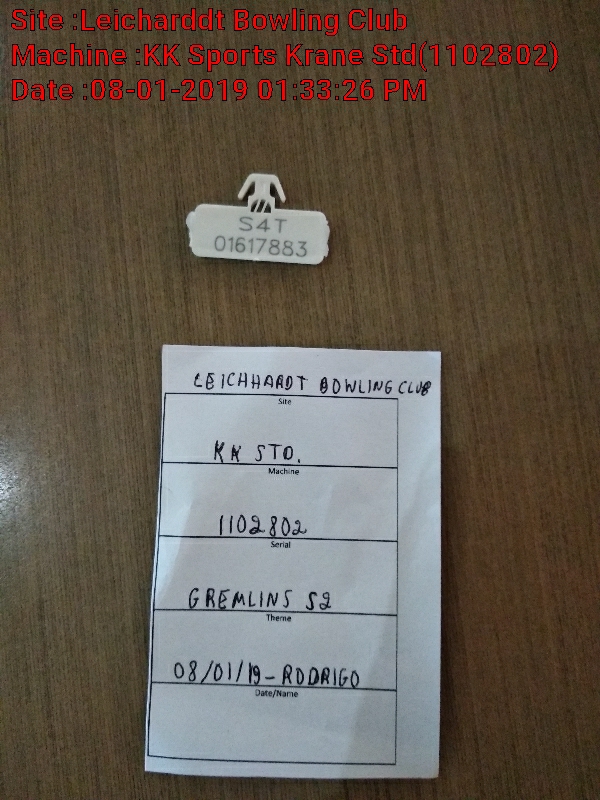 Site :Leicharddt Bowling Club
Machine :KK Sports Krane Std(1102802)
Date :08-01-2019 01:33:26 PM
S4T
01617883
LEICHHARDT BOWLING CLUB
Site
KK STD.
Machine
1102802
Serial
GREMLINS S2
Theme
08/01/19-RODRIGO
Date/Name